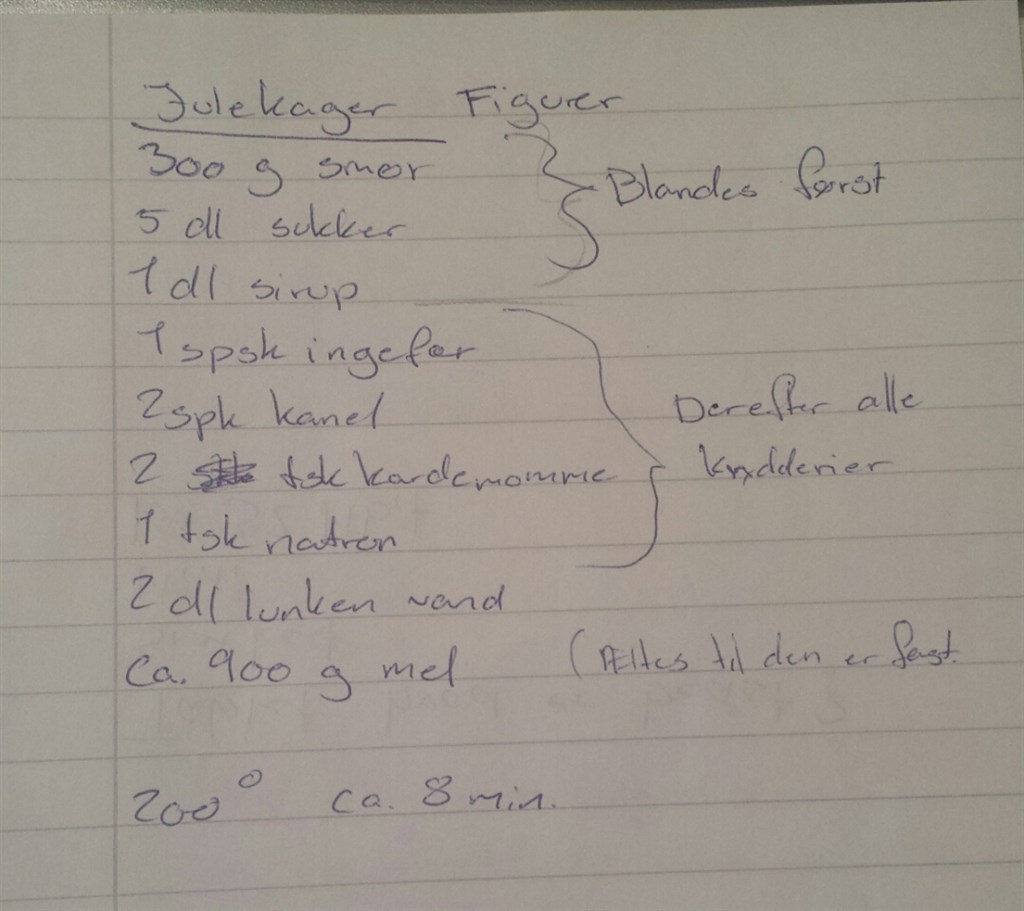 Julekager Figurer
300 g smør
Blandes først
5 dl sukker
1 dl sirup
1 spsk ingefær
2 spk kanel
Derefter alle
krydderier
2 tsk kardemomme
1 tsk natron
2 dl lunken vand
ca. 900 g mel (Æltes til den er fast.
200° ca. 8 min.